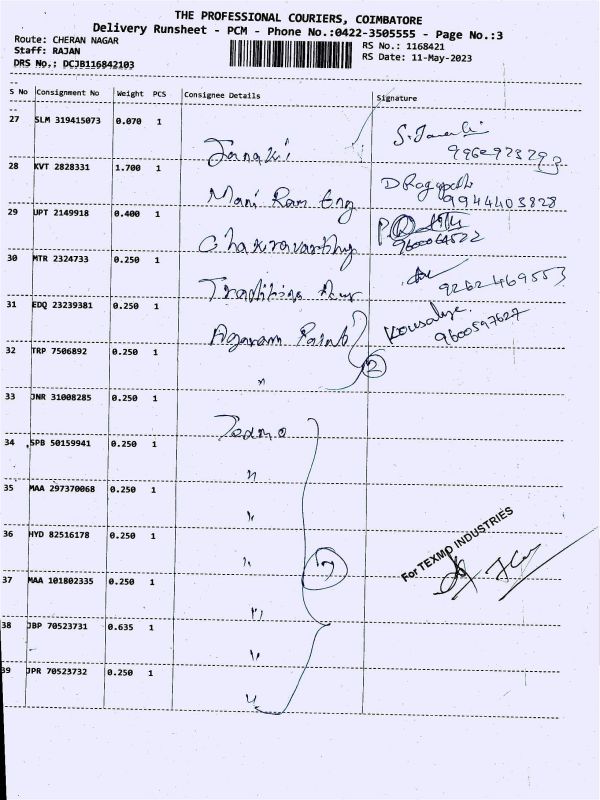 THE PROFESSIONAL COURIERS, COIMBATORE
Delivery Runsheet - PCM - Phone No.:0422-3505555 - Page No.:3
Route: CHERAN NAGAR
RS No.: 1168421
Staff: RAJAN
RS Date: 11-May-2023
DRS No.: DCJB116842103
S No Consignment No Weight PCS Consignee Details Signature
27 SLM 319415073 0.070 1
Janaki
28 KVT 2828331 1.700 1
Mani Ram Eng
9944403828
29 UPT 2149918 0.400 1
Chakravarthy
30 MTR 2324733 0.250 1
9262469553
31 EDQ 23239381 0.250 1
Agaram Paint
Kousalya.
9600597627
32 TRP 7506892 0.250 1
"
2
33 JNR 31008285 0.250 1
34 SPB 50159941 0.250 1
"
35 MAA 297370068 0.250 1
"
36 HYD 82516178 0.250 1
"
For TEXMO INDUSTRIES
37 MAA 101802335 0.250 1
"
38 JBP 70523731 0.635 1
"
39 JPR 70523732 0.250 1
"